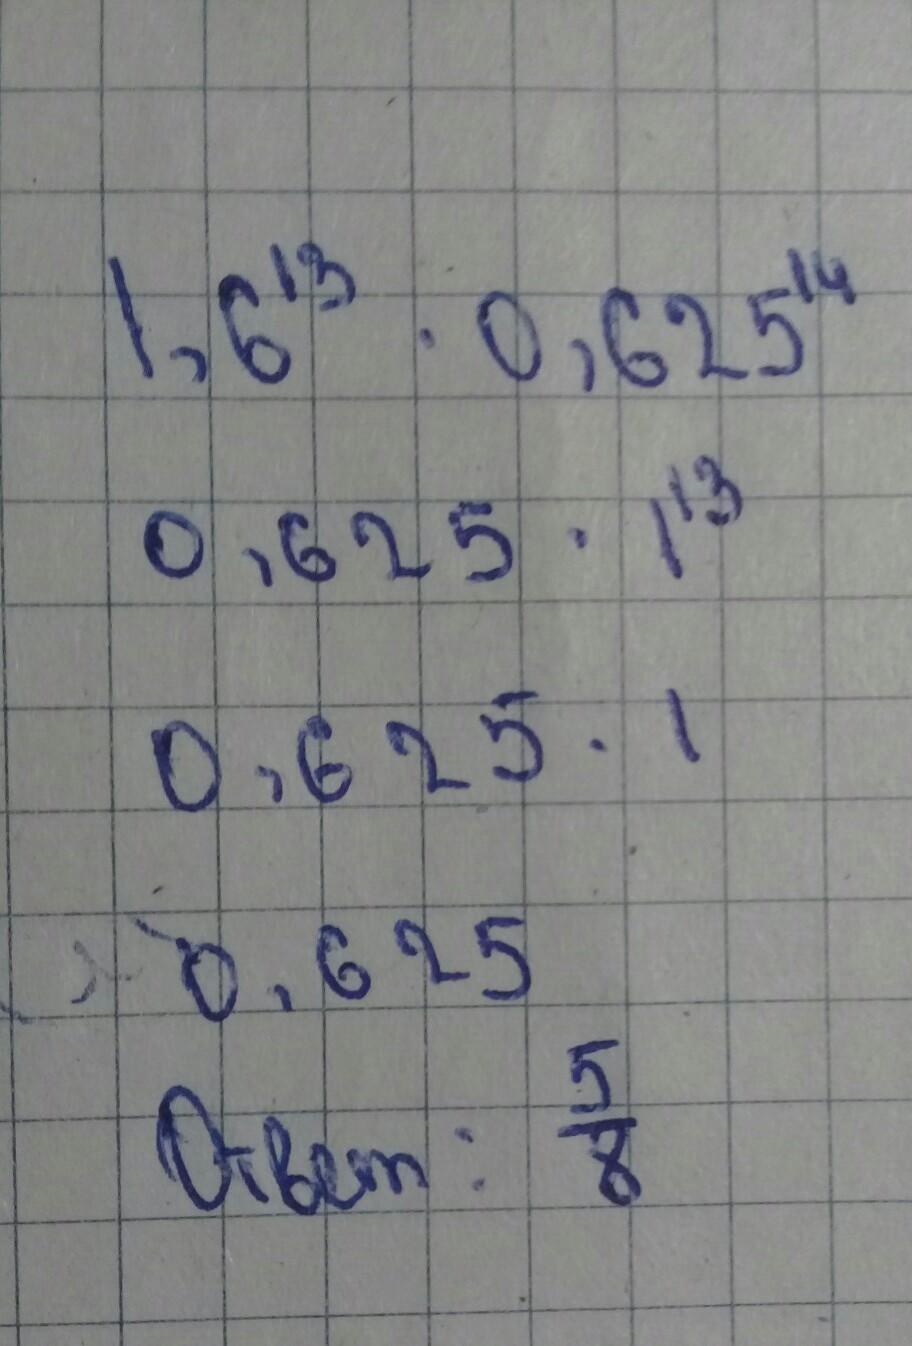 1,6¹³ · 0,625¹⁴
0,625 · 1¹³
0,625 · 1
0,625
Ответ: 5/8